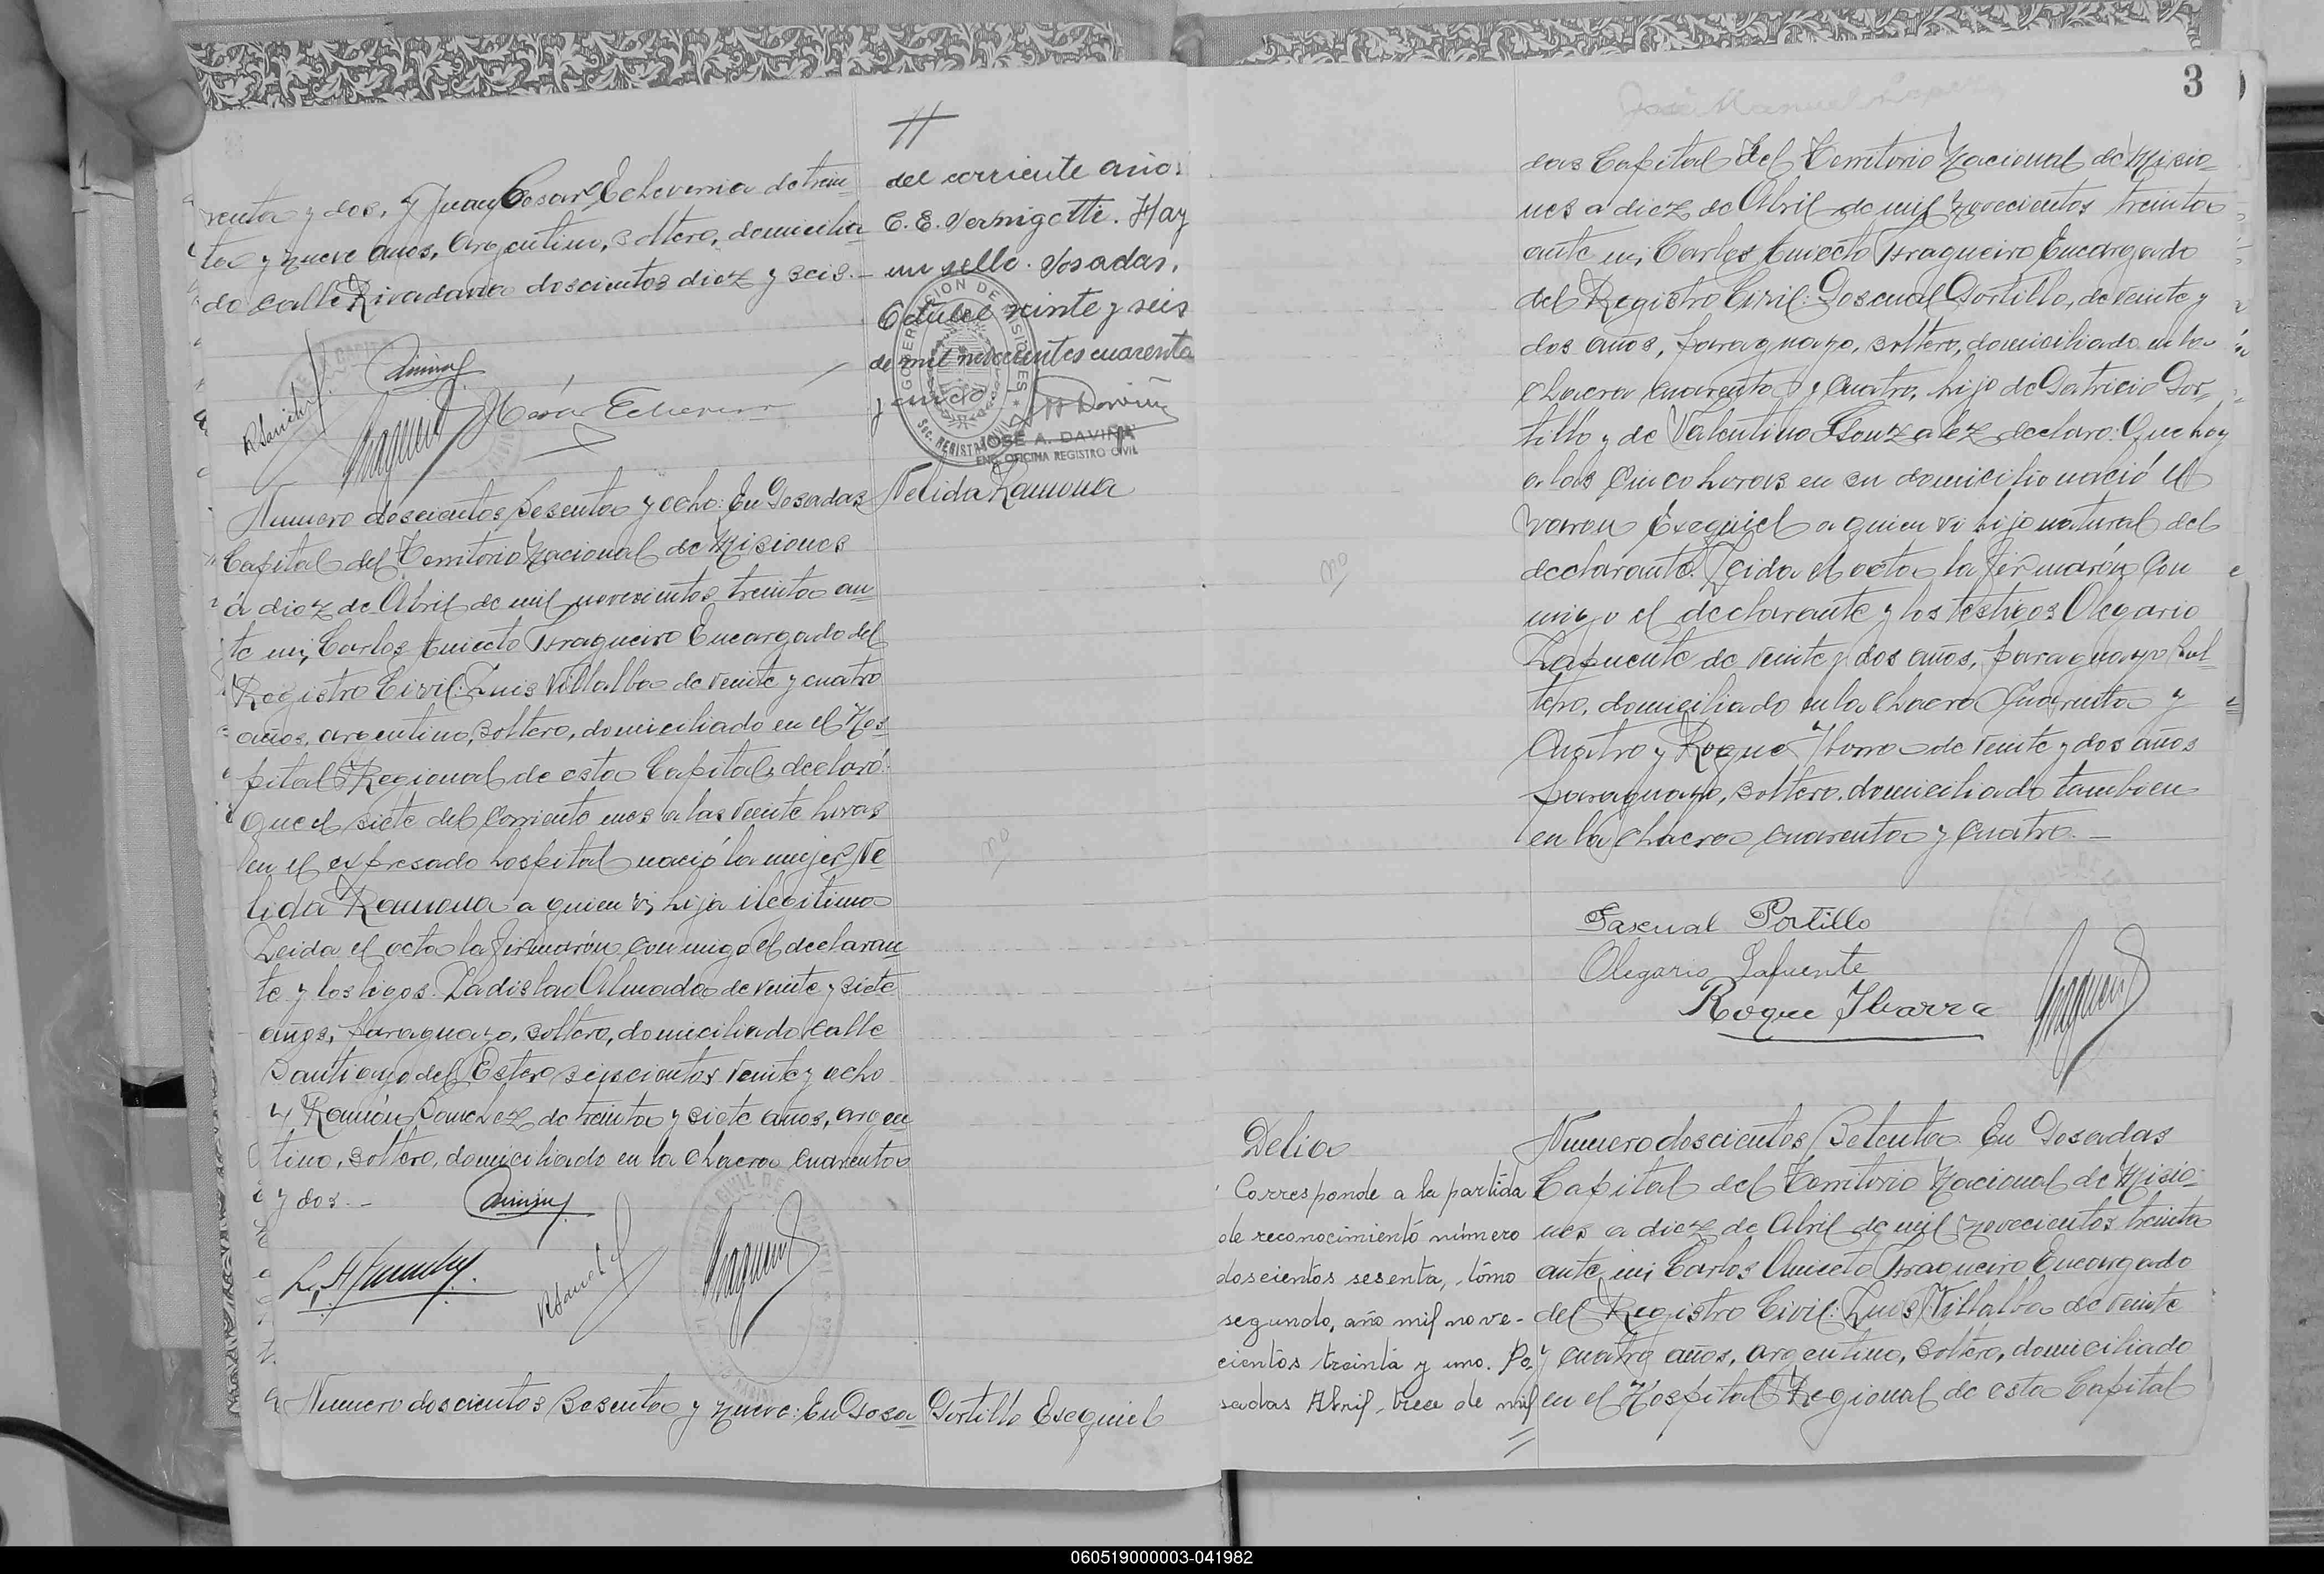 renta y dos, y Juan Cesar Echeverria de trein-
ta y nueve años, argentino, soltero, domicilia-
do calle Rivadavia doscientos diez y seis.-
#
del corriente año:
C. E. Vernigotti. Hay
un sello. Posadas,
Octubre veinte y seis
de mil novecientos cuarenta
y cinco
GOBERNACION DE MISIONES
Sec. REGISTRO CIVIL
JOSÉ A. DAVIÑA
ENC. OFICINA REGISTRO CIVIL
Nelida Ramona
Numero doscientos sesenta y ocho: En Posadas
Capital del Territorio Nacional de Misiones
á diez de Abril de mil novecientos treinta an-
te mi, Carlos Aniceto Fragueiro Encargado del
Registro Civil: Luis Villalba de veinte y cuatro
años, argentino, soltero, domiciliado en el Hos-
pital Regional de esta Capital, declaró:
Que el siete del corriente mes a las veinte horas
en el expresado hospital nació la mujer Ne-
lida Ramona a quien vi, hija ilegitima
Leida el acta la firmarón conmigo el declaran-
te y los tigos. Ladislao Almada de veinte y siete
años, paraguayo, soltero, domiciliado calle
Santiago del Estero seiscientos veinte y ocho
y Ramón Sanchez de treinta y siete años, argen-
tino, soltero, domiciliado en la chacra cuarenta
y dos.-
no
Numero doscientos sesenta y nueve: En Posa-
Portillo Esequiel
3
José Manuel Lopez
das Capital del Territorio Nacional de Misio-
nes a diez de Abril de mil novecientos treinta
ante mi, Carlos Aniceto Fragueiro Encargado
del Registro Civil: Pascual Portillo, de veinte y
dos años, paraguayo, soltero, domiciliado en la
chacra cuarenta y cuatro, hijo de Patricio Por-
tillo y de Valentina Gonzalez, declaro: Que hoy
a las cinco horas en su domicilio nació el
varon Esequiel a quien vi hijo natural del
declarante. Leida el acta la firmarón con
migo el declarante y los testigos Olegario
Lafuente de veinte y dos años, paraguayo sol-
tero, domiciliado en la chacra cuarenta y
cuatro y Roque Ibarra de veinte y dos años
paraguayo, soltero, domiciliado tambien
en la chacra cuarenta y cuatro.-
no
Pascual Portillo
Olegario Lafuente
Roque Ibarra
Delia
Corresponde a la partida
de reconocimiento número
doscientos sesenta, tomo
segundo, año mil nove-
cientos treinta y uno. Po-
sadas Abril, trece de mil
=
Numero doscientos setenta En Posadas
Capital del Territorio Nacional de Misio-
nes a diez de Abril de mil novecientos treinta
ante mi Carlos Aniceto Fragueiro Encargado
del Registro Civil: Luis Villalba de veinte
y cuatro años, argentino, soltero, domiciliado
en el Hospital Regional de esta Capital
060519000003-041982